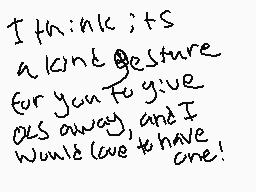 I think its
a kind gesture
for you to give
ocs away, and I
would love to have
one!